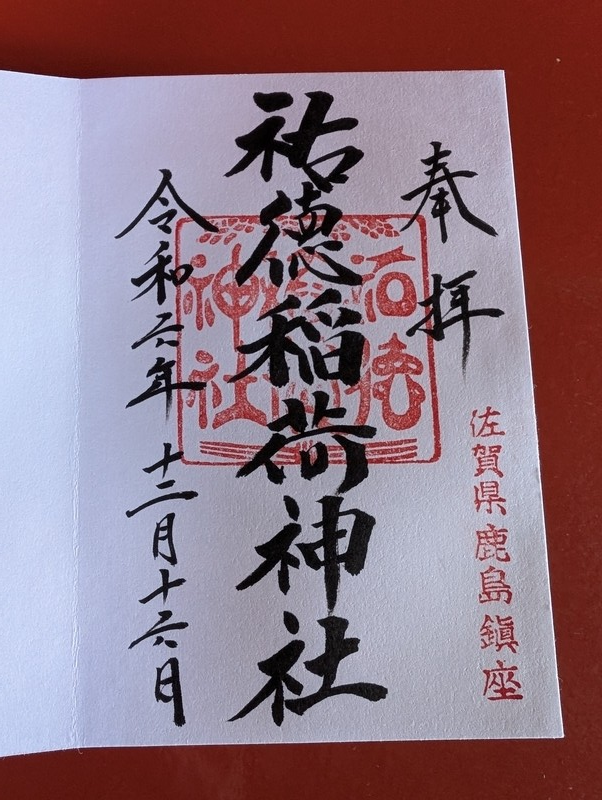 奉拝
佐賀県鹿島鎮座
祐徳稲荷神社
祐徳
神社
令和六年十二月十六日